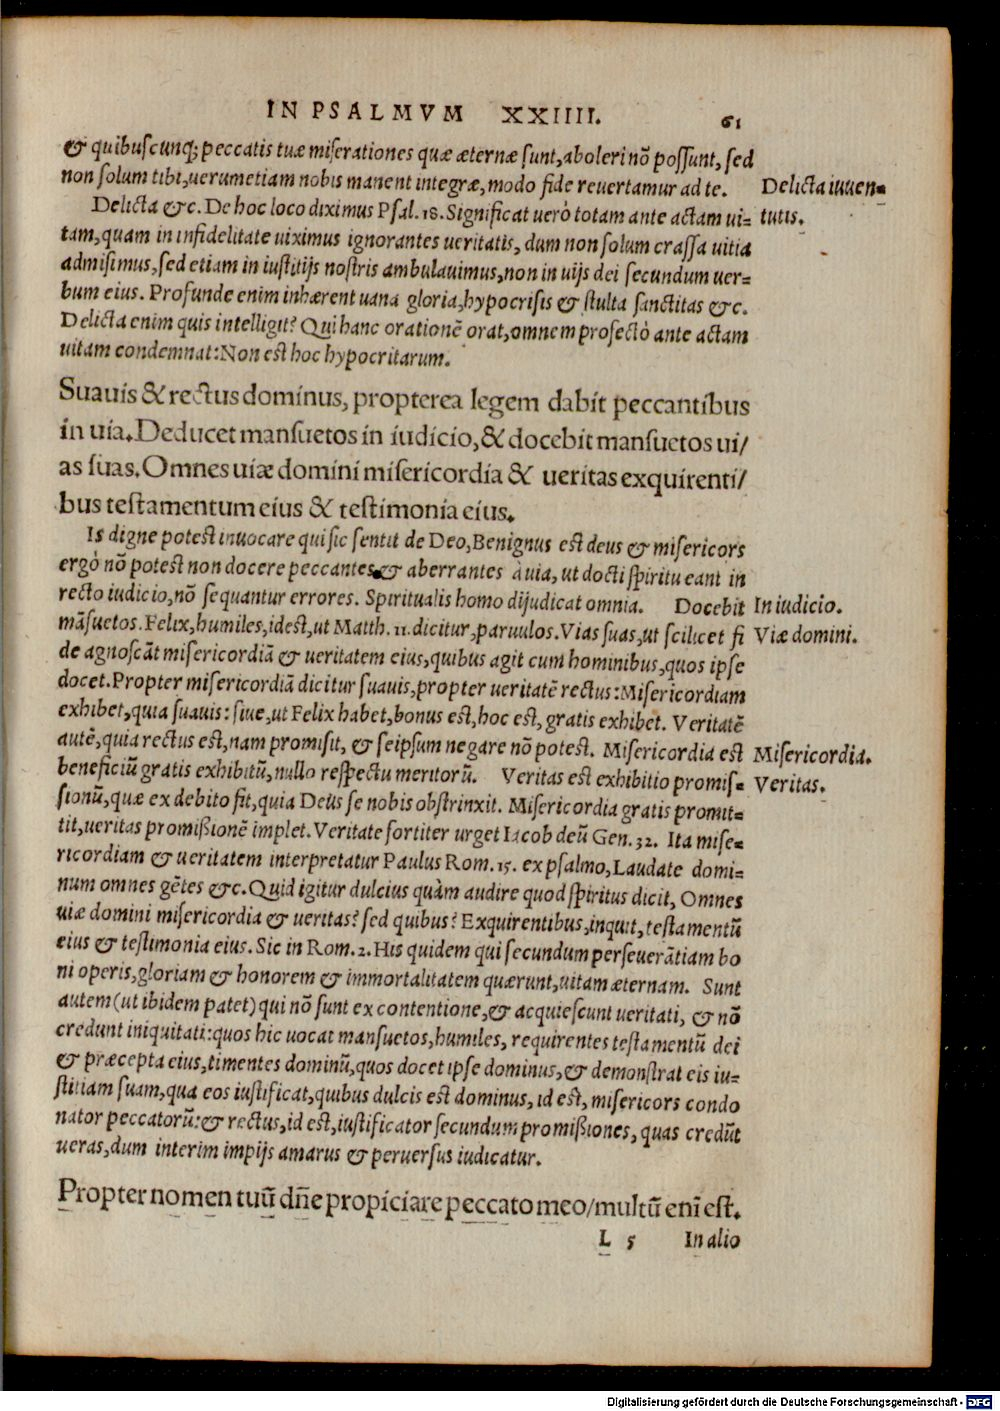 IN PSALMVM XXIIII. 61
& quibuscunq; peccatis tuæ miserationes quæ æternæ sunt, aboleri nõ possunt, sed
non solum tibi, uerumetiam nobis manent integræ, modo fide reuertamur ad te.
Delicta iuuen=
tutis.
Delicta &c. De hoc loco diximus Psal. 18. Significat uerò totam ante actam ui=
tam, quam in infidelitate uiximus ignorantes ueritatis, dum non solum crassa uitia
admisimus, sed etiam in iustitijs nostris ambulauimus, non in uijs dei secundum uer=
bum eius. Profunde enim inhærent uana gloria, hypocrisis & stulta sanctitas &c.
Delicta enim quis intelligit? Qui hanc orationẽ orat, omnem profectò ante actam
uitam condemnat: Non est hoc hypocritarum.
Suauis & rectus dominus, propterea legem dabit peccantibus
in uia. Deducet mansuetos in iudicio, & docebit mansuetos ui/
as suas. Omnes uiæ domini misericordia & ueritas exquirenti/
bus testamentum eius & testimonia eius.
Is digne potest inuocare qui sic sentit de Deo, Benignus est deus & misericors
ergò nõ potest non docere peccantes & aberrantes à uia, ut docti spiritu eant in
recto iudicio, nõ sequantur errores. Spiritualis homo dijudicat omnia. Docebit
In iudicio.
mãsuetos. Felix, humiles, idest, ut Matth. 11. dicitur, paruulos. Vias suas, ut scilicet fi
Viæ domini.
de agnoscãt misericordiã & ueritatem eius, quibus agit cum hominibus, quos ipse
docet. Propter misericordiã dicitur suauis, propter ueritatẽ rectus: Misericordiam
exhibet, quia suauis: siue, ut Felix habet, bonus est, hoc est, gratis exhibet. Veritatẽ
autẽ, quia rectus est, nam promisit, & seipsum negare nõ potest. Misericordia est
Misericordia.
beneficiũ gratis exhibitũ, nullo respectu meritorũ. Veritas est exhibitio promis=
Veritas.
sionũ, quæ ex debito fit, quia Deus se nobis obstrinxit. Misericordia gratis promit=
tit, ueritas promißionẽ implet. Veritate fortiter urget Iacob deũ Gen. 32. Ita mise=
ricordiam & ueritatem interpretatur Paulus Rom. 15. ex psalmo, Laudate domi=
num omnes gẽtes &c. Quid igitur dulcius quàm audire quod spiritus dicit, Omnes
uiæ domini misericordia & ueritas? sed quibus? Exquirentibus, inquit, testamentũ
eius & testimonia eius. Sic in Rom. 2. His quidem qui secundum perseuerãtiam bo
ni operis, gloriam & honorem & immortalitatem quærunt, uitam æternam. Sunt
autem (ut ibidem patet) qui nõ sunt ex contentione, & acquiescunt ueritati, & nõ
credunt iniquitati: quos hic uocat mansuetos, humiles, requirentes testamentũ dei
& præcepta eius, timentes dominũ, quos docet ipse dominus, & demonstrat eis iu=
stitiam suam, qua eos iustificat, quibus dulcis est dominus, id est, misericors condo
nator peccatorũ: & rectus, id est, iustificator secundum promißiones, quas credũt
ueras, dum interim impijs amarus & peruersus iudicatur.
Propter nomen tuũ dñe propiciare peccato meo/multũ enĩ est.
L 5 In alio
Digitalisierung gefördert durch die Deutsche Forschungsgemeinschaft - DFG